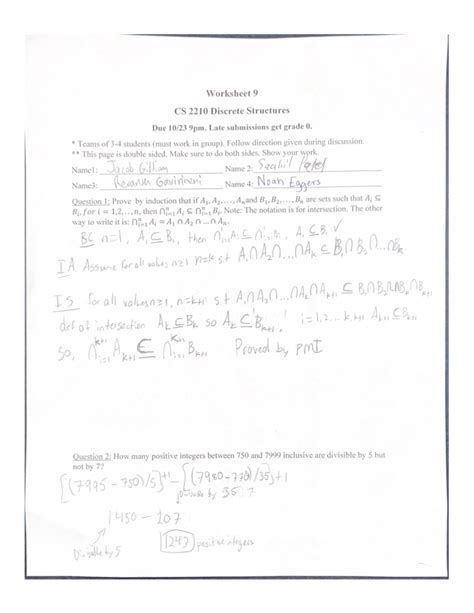 Worksheet 9
CS 2210 Discrete Structures
Due 10/23 9pm. Late submissions get grade 0.
* Teams of 3-4 students (must work in group). Follow direction given during discussion.
** This page is double sided. Make sure to do both sides. Show your work.
Name1: Jacob Gilliam Name 2:
Name3: Name 4: Noah Eggers
Question 1: Prove by induction that if A₁, A₂, ..., Aₙ and B₁, B₂, ..., Bₙ are sets such that Aᵢ ⊆
Bᵢ, for i = 1,2, .. n, then ⋂ⁿᵢ₌₁ Aᵢ ⊆ ⋂ⁿᵢ₌₁ Bᵢ. Note: The notation is for intersection. The other
way to write it is: ⋂ⁿᵢ₌₁ Aᵢ = A₁ ∩ A₂ ∩ ... ∩ Aₙ.
BC n=1, A₁ ⊆ B₁, then ⋂¹ᵢ₌₁Aᵢ ⊆ ⋂¹ᵢ₌₁Bᵢ, A₁ ⊆ B₁ ✓
IA Assume for all values n≥1 n=k s.t A₁∩A₂∩...∩Aₖ ⊆ B₁∩B₂∩...∩Bₖ
IS for all values n≥1, n=k+1 s.t A₁∩A₂∩...∩Aₖ∩Aₖ₊₁ ⊆ B₁∩B₂∩...∩Bₖ∩Bₖ₊₁
def of intersection Aₖ ⊆ Bₖ so Aₖ ⊆ Bₖ₊₁, i=1,2...k,k+1 Aₖ₊₁ ⊆ Bₖ₊₁
So, ⋂ᵏ⁺¹ᵢ₌₁ Aₖ₊₁ ⊆ ⋂ᵏ⁺¹ᵢ₌₁ Bₖ₊₁ Proved by PMI
Question 2: How many positive integers between 750 and 7999 inclusive are divisible by 5 but
not by 7?
[(7995 - 750)/5]+1 - [(7980-770)/35]+1
divisible by 35
1450 - 207
Divisible by 5
1243 positive integers